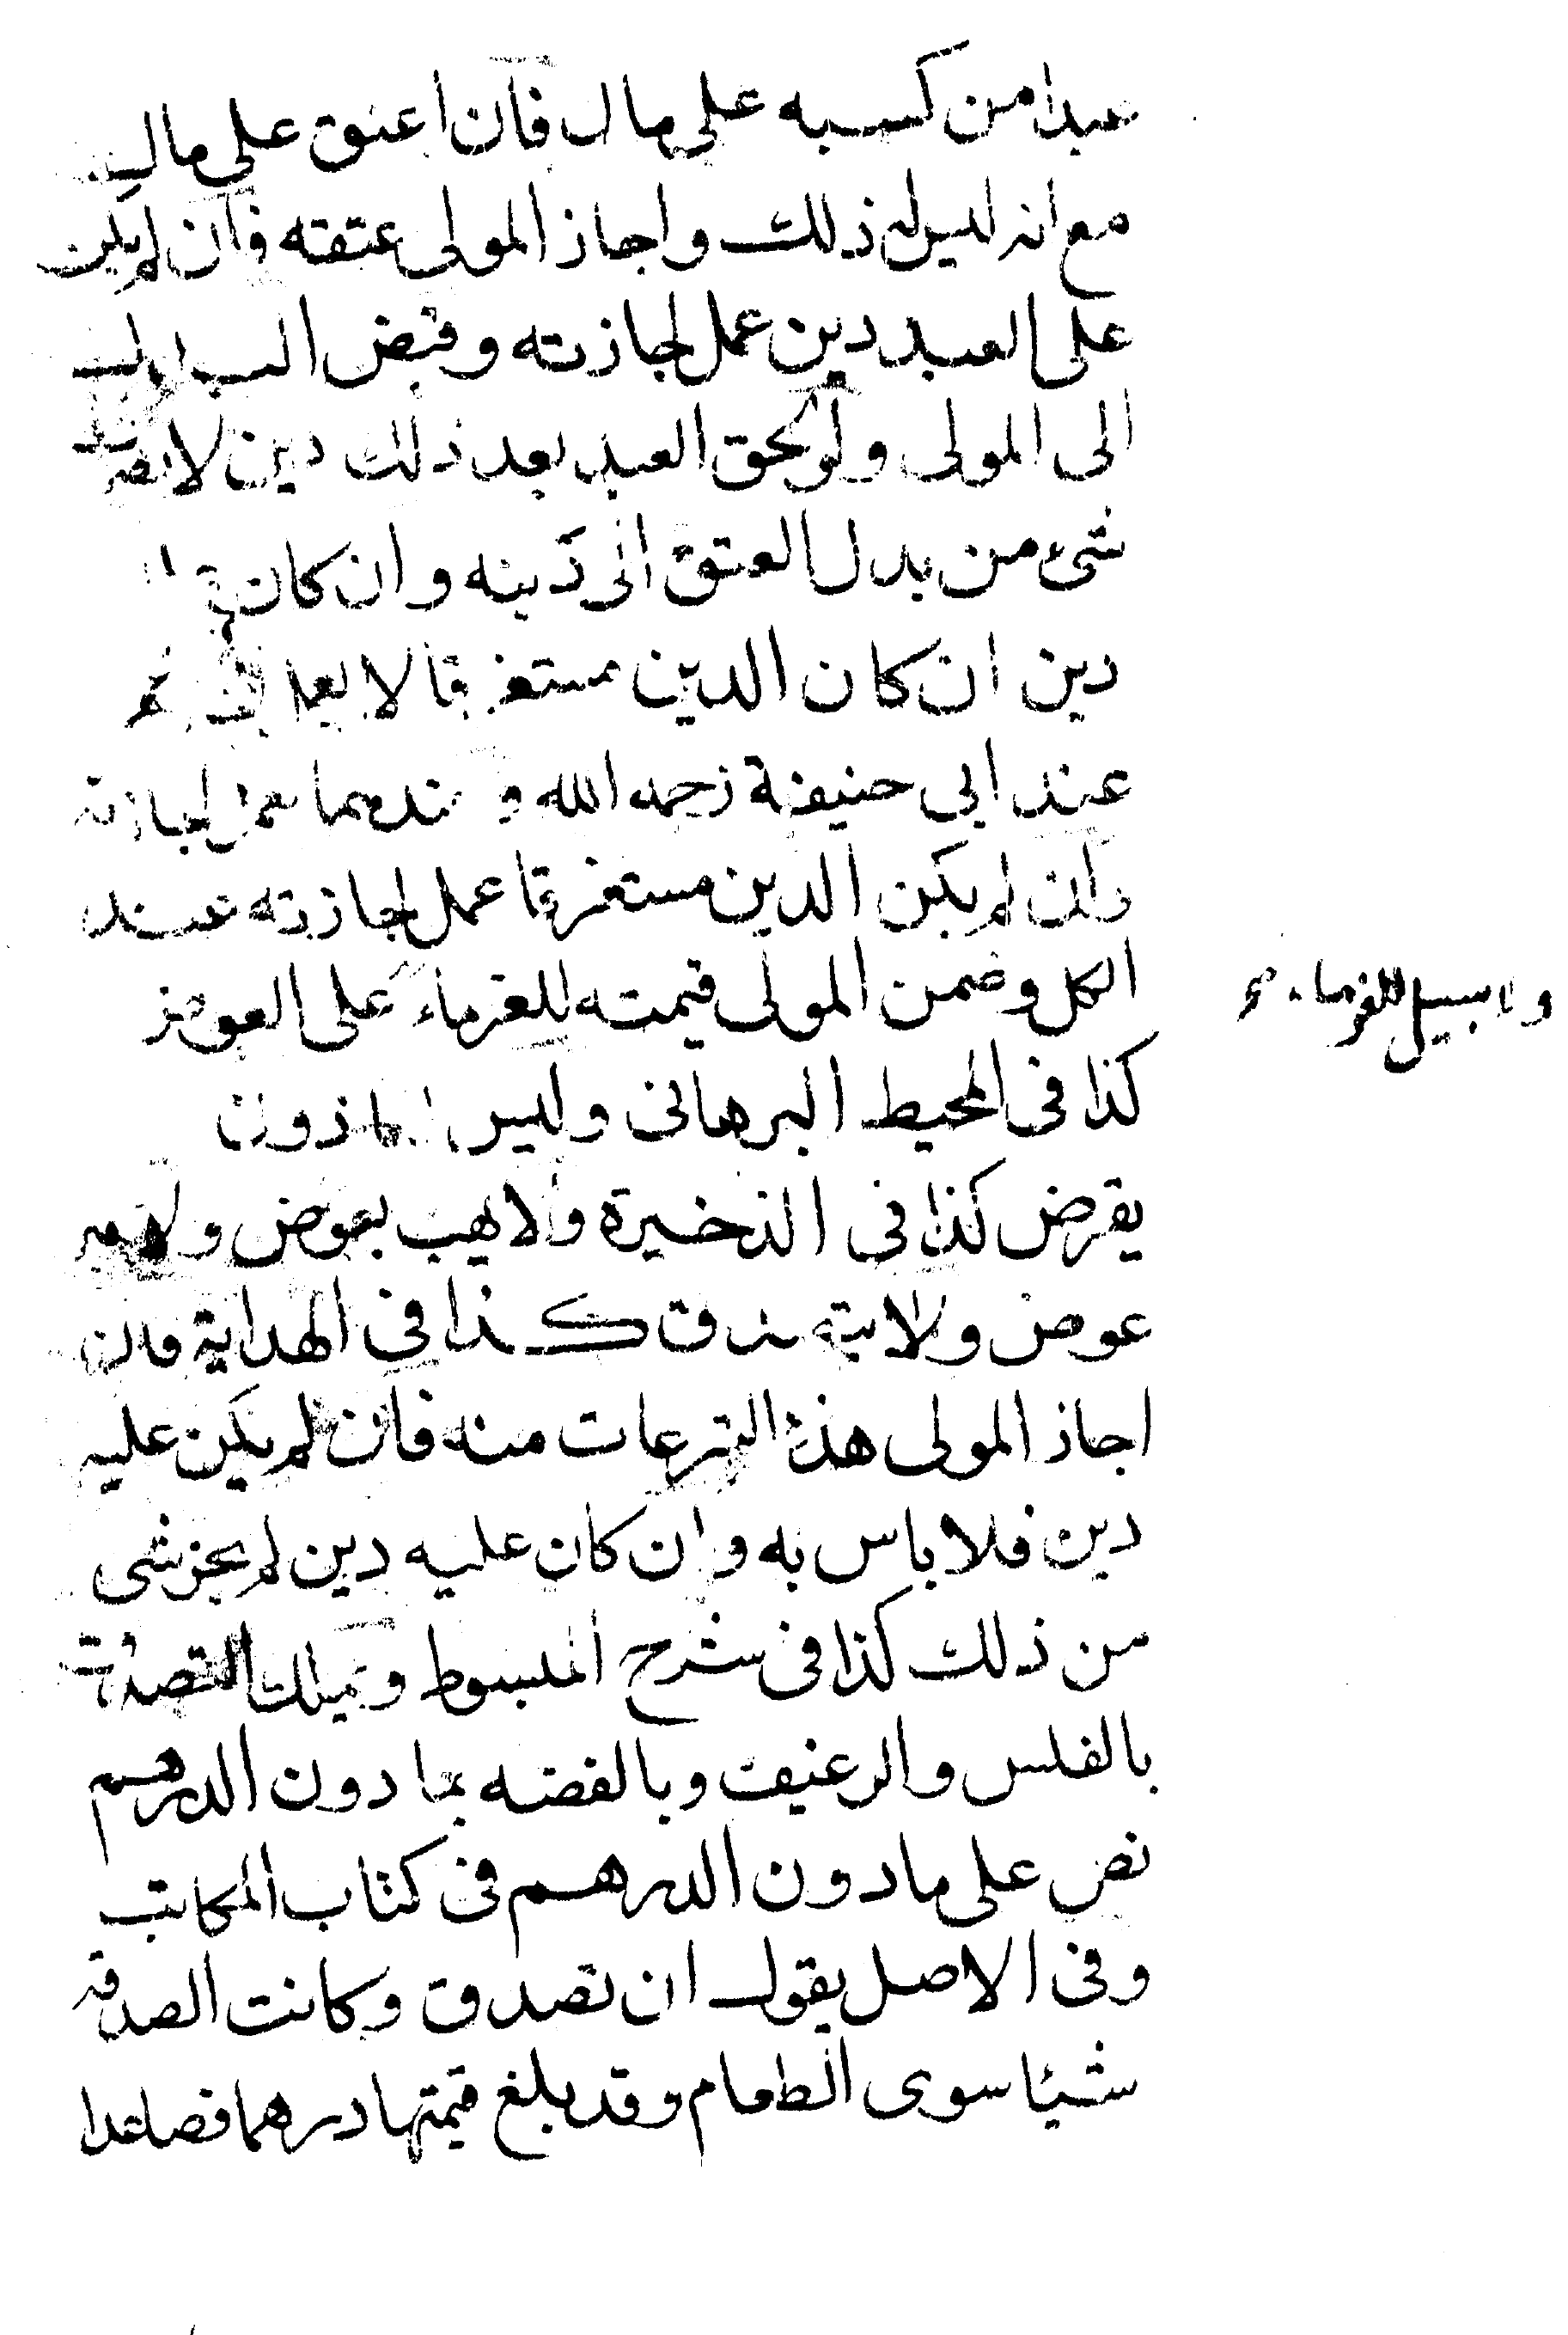 عبدا من كسبه على مال فان اعتق على مال
مع انه ليس له ذلك واجاز المولى عتقه فان لم يكن
على العبد دين عمل اجازته وقبض البدل
الى المولى ولو لحق العبد بعد ذلك دين لا يصرف
شئ من بدل العتق الى دينه وان كان
دين ان كان الدين مستغرقا لا يعمل
عند ابى حنيفة رحمه الله وعندهما يعمل اجازته
وان لم يكن الدين مستغرقا عمل اجازته عند
الكل وضمن المولى قيمته للغرماء على العوض
ولا سبيل للغرماء صح
كذا فى المحيط البرهانى وليس للماذون
يقرض كذا فى الذخيرة ولا يهب بعوض ولا بغير
عوض ولا يتصدق كذا فى الهداية فان
اجاز المولى هذه التبرعات منه فان لم يكن عليه
دين فلا باس به وان كان عليه دين لم يجز شى
من ذلك كذا فى شرح المبسوط ويملك التصدق
بالفلس والرغيف وبالفضه بما دون الدرهم
نص على ما دون الدرهم فى كتاب المكاتب
وفى الاصل يقول ان تصدق وكانت الصدقه
شيئا سوى الطعام وقد بلغ قيمتها درهما فصاعدا